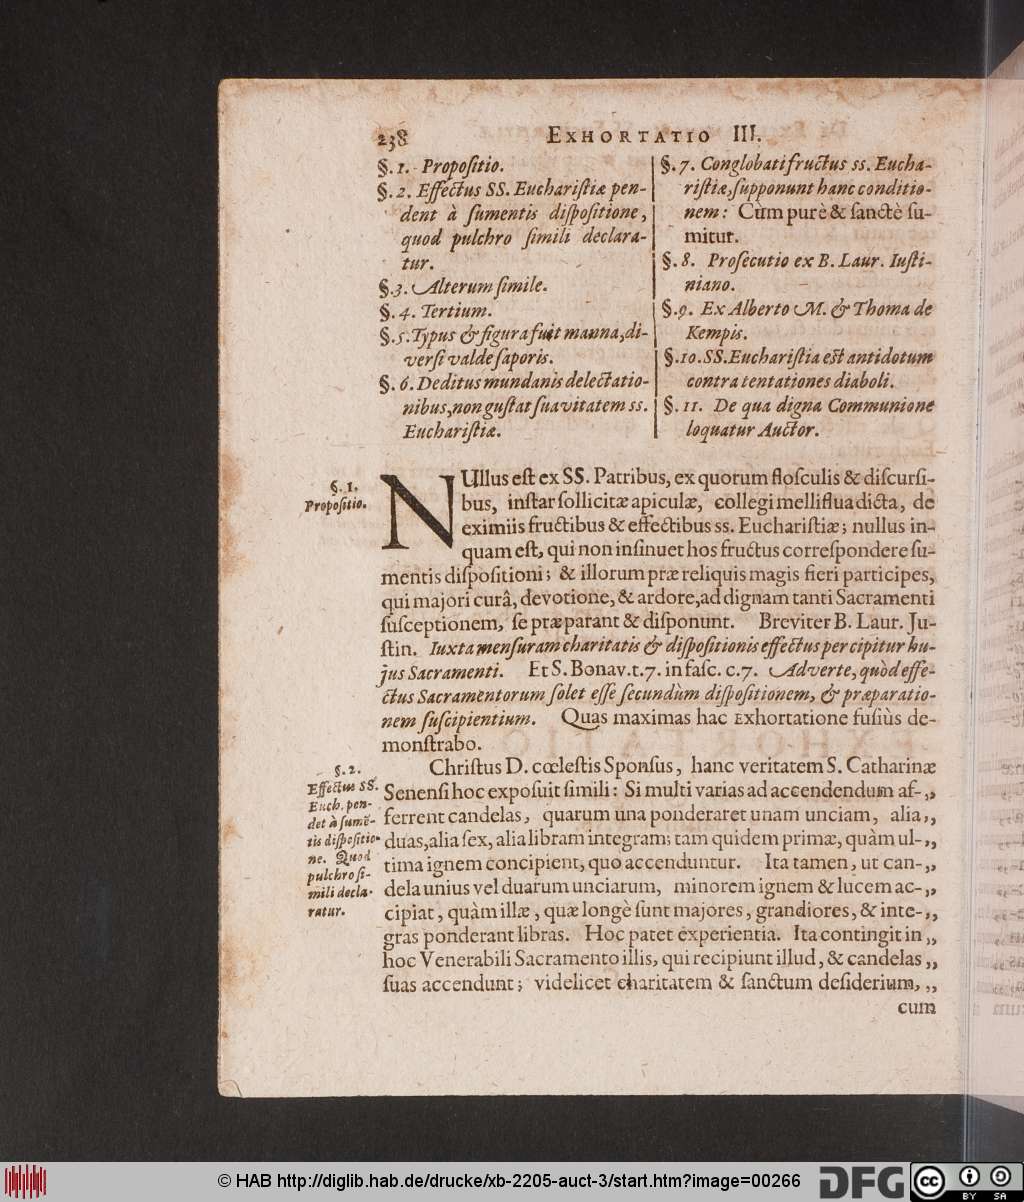 238 EXHORTATIO III.
§. 1. Propoſitio.
§. 2. Effectus SS. Euchariſtiæ pen-
dent à ſumentis diſpoſitione,
quod pulchro ſimili declara-
tur.
§. 3. Alterum ſimile.
§. 4. Tertium.
§. 5. Typus & figura fuit manna, di-
verſi valde ſaporis.
§. 6. Deditus mundanis delectatio-
nibus, non guſtat ſuavitatem ss.
Euchariſtiæ.
§. 7. Conglobati fructus ss. Eucha-
riſtiæ, ſupponunt hanc conditio-
nem: Cùm purè & ſanctè ſu-
mitur.
§. 8. Proſecutio ex B. Laur. Iuſti-
niano.
§. 9. Ex Alberto M. & Thoma de
Kempis.
§. 10. SS. Euchariſtia eſt antidotum
contra tentationes diaboli.
§. 11. De qua digna Communione
loquatur Auctor.
§. 1.
Propoſitio.
NUllus eſt ex SS. Patribus, ex quorum floſculis & diſcurſi-
bus, inſtar ſollicitæ apiculæ, collegi melliflua dicta, de
eximiis fructibus & effectibus ss. Euchariſtiæ; nullus in-
quam eſt, qui non inſinuet hos fructus correſpondere ſu-
mentis diſpoſitioni; & illorum præ reliquis magis fieri participes,
qui majori curâ, devotione, & ardore, ad dignam tanti Sacramenti
ſuſceptionem, ſe præparant & diſponunt. Breviter B. Laur. Ju-
ſtin. Iuxta menſuram charitatis & diſpoſitionis effectus percipitur hu-
jus Sacramenti. Et S. Bonav. t. 7. in faſc. c. 7. Adverte, quòd effe-
ctus Sacramentorum ſolet eſſe ſecundùm diſpoſitionem, & præparatio-
nem ſuſcipientium. Quas maximas hac Exhortatione fuſiùs de-
monſtrabo.
§. 2.
Effectus SS.
Euch. pen-
det à ſumē-
tis diſpoſitio-
ne. Quod
pulchro ſi-
mili decla-
ratur.
Chriſtus D. cœleſtis Sponſus, hanc veritatem S. Catharinæ
Senenſi hoc expoſuit ſimili: Si multi varias ad accendendum af- „
ferrent candelas, quarum una ponderaret unam unciam, alia „
duas, alia ſex, alia libram integram; tam quidem primæ, quàm ul- „
tima ignem concipient, quo accenduntur. Ita tamen, ut can- „
dela unius vel duarum unciarum, minorem ignem & lucem ac- „
cipiat, quàm illæ, quæ longè ſunt majores, grandiores, & inte- „
gras ponderant libras. Hoc patet experientia. Ita contingit in „
hoc Venerabili Sacramento illis, qui recipiunt illud, & candelas „
ſuas accendunt; videlicet charitatem & ſanctum deſiderium, „
cum
© HAB http://diglib.hab.de/drucke/xb-2205-auct-3/start.htm?image=00266
DFG
cc BY SA